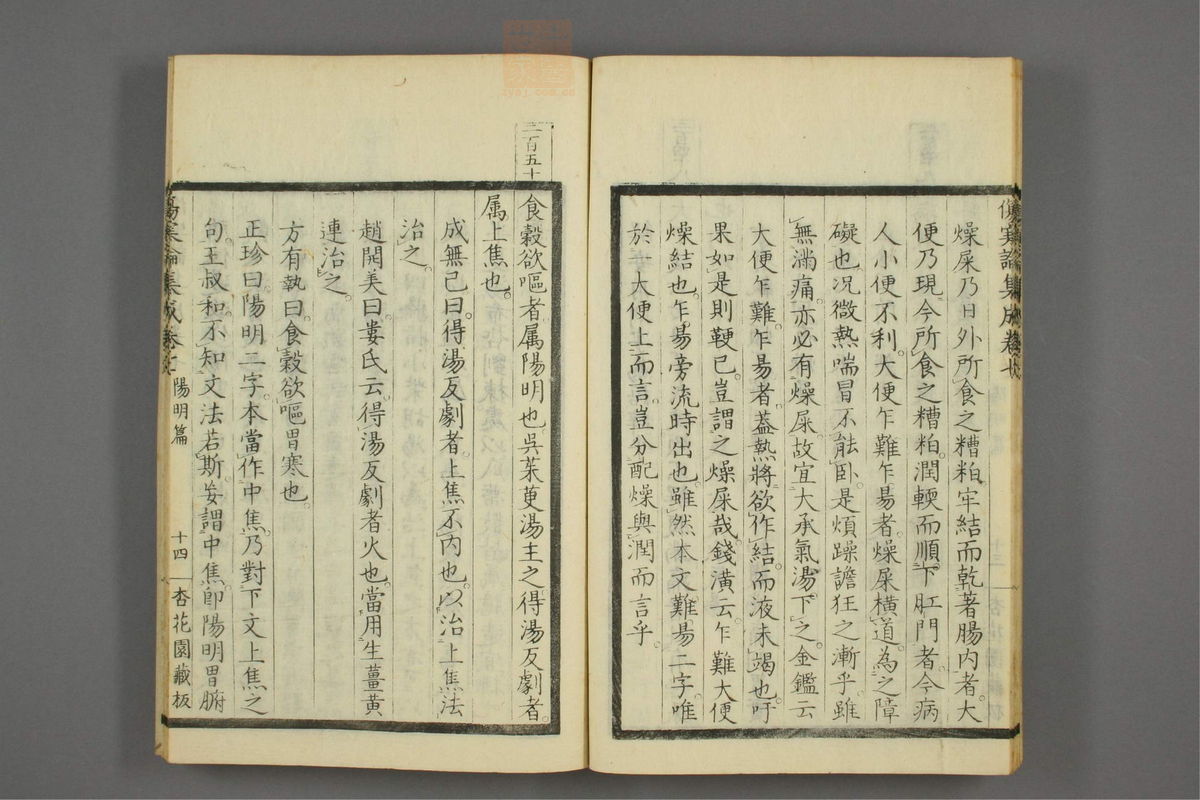 傷寒論集成卷七
燥屎乃日外所食之糟粕牢結而乾著腸内者大
便乃現今所食之糟粕潤輭而順下肛門者今病
人小便不利大便乍難乍昜者燥屎橫道為之障
礙也况微熱喘冒不能卧是煩躁譫狂之漸乎雖
無滿痛亦必有燥屎故宜大承氣湯下之金鑑云
大便乍難乍昜者葢熱將欲作結而液未竭也吁
果如是則鞕已豈謂之燥屎哉錢潢云乍難大便
燥結也乍昜旁流時出也雖然本文難昜二字唯
於大便上而言豈分配燥與潤而言乎
二百五十
食穀欲嘔者属陽明也呉茱萸湯主之得湯反劇者
属上焦也
成無己曰得湯反劇者上焦不内也以治上焦法
治之
趙開美曰婁氏云得湯反劇者火也當用生薑黄
連治之
方有執曰食穀欲嘔胃寒也
正珍曰陽明二字本當作中焦乃對下文上焦之
句王叔和不知文法若斯妄謂中焦即陽明胃腑
傷寒論集成卷七
陽明篇
十四
杏花園藏板